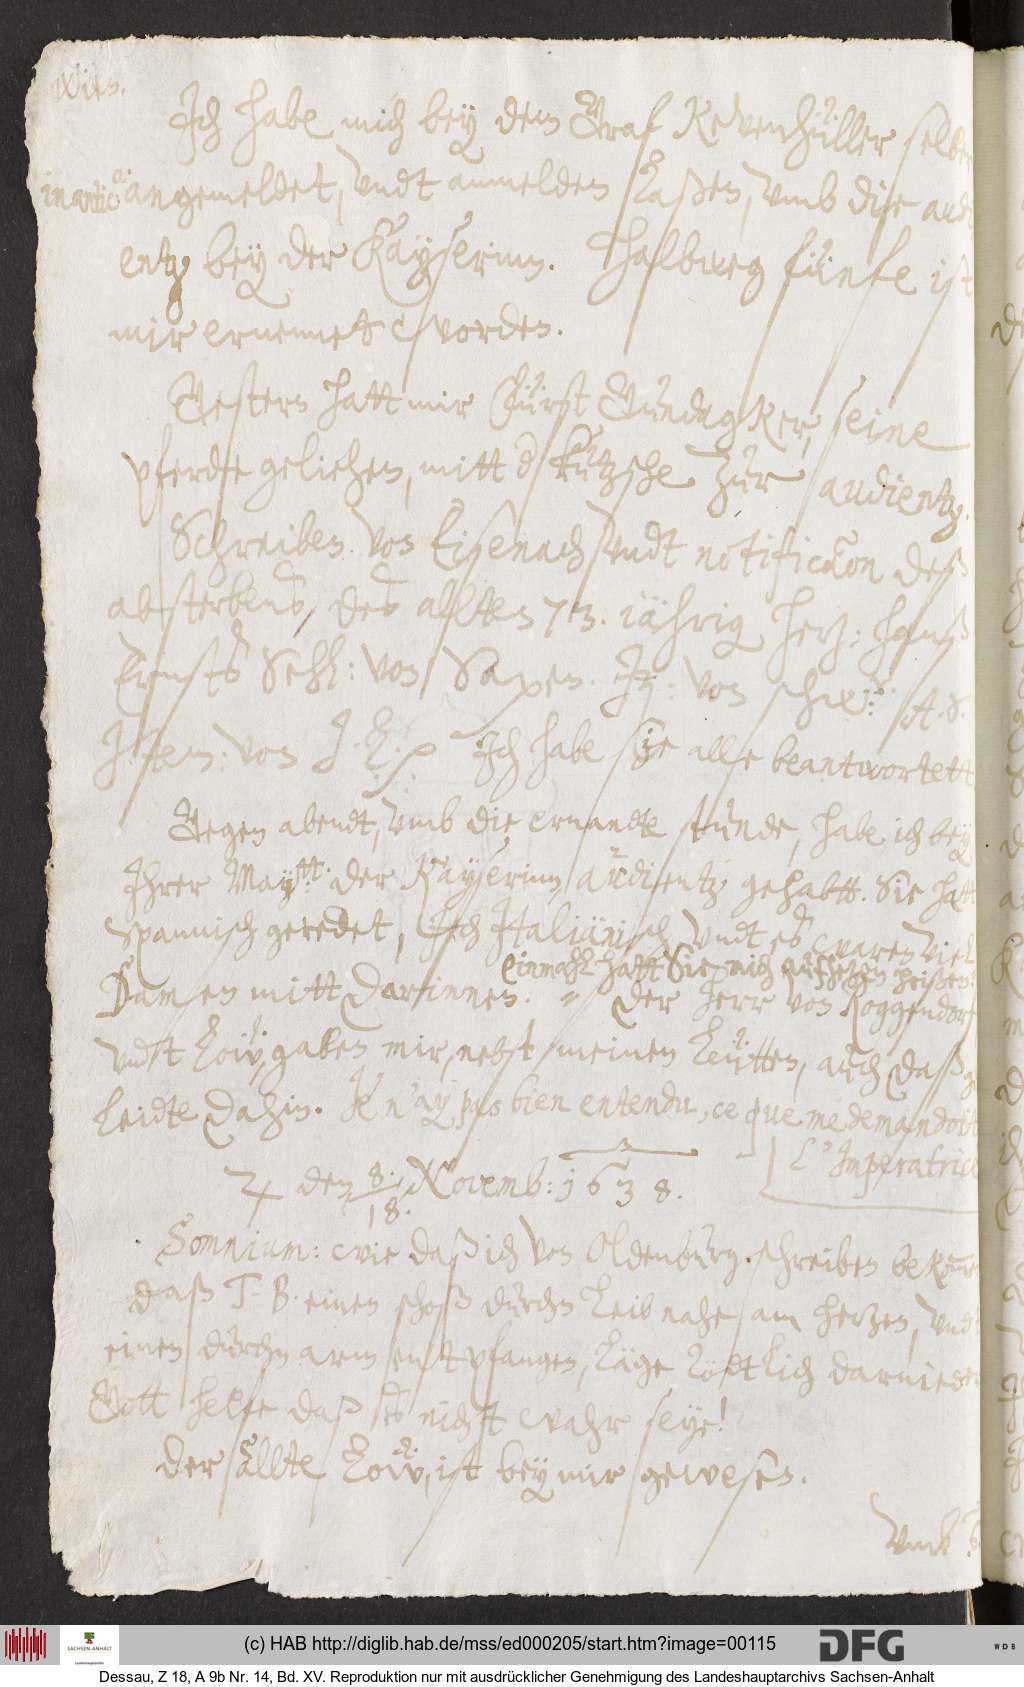 Wien.
Ich habe mich bey dem Graf Kevenhüller selber
in antic:
angemeldet, vndt anmelden laßen, vmb die audi
entz bey der Kayserinn. Halbweg fünfe ist
mir ernennet worden.
Gestern hatt mir Fürst Gundagker, seine
pferde geliehen, mitt der kutzsche zur audientz.
Schreiben von Eisenach vndt notification deß
absterbens, des allten 73. iährig herz: Hanß
Ernsts Sehl: von Saxen. It: von A. S.
Item: von J. L. p Ich habe sie alle beantwortett
Gegen abendt, vmb die ernandte stunde, habe ich bey
Ihrer Maytt: der Kayserinn audientz gehabtt. Sie hatt
Spannisch geredet, Ich Italiänisch vndt es waren viel
Einmahl hatt Sie mich aufsetzen heißen.
Damen mitt darinnen. = der herr von Roggendorf
vndt Löw, gaben mir, nebst meinen leütten, auch daß ge
leidte dahin. Je n'ay pas bien entendu, ce que me demandoit
L'Imperatrice
♃ den 8./18. Novemb: 1638.
Somnium: wie daß ich von Oldenburg. schreiben bekäme
daß T. B. einen schoß durchn leib nahe am hertzen, vndt
einen durchn arm entpfangen, läge tödtlich darnieder
Gott helfe daß es nicht wahr seye!
Der ällte Löw, ist bey mir gewesen.
(c) HAB http://diglib.hab.de/mss/ed000205/start.htm?image=00115
SACHSEN-ANHALT
Landeshauptarchiv
DFG
WDB
Dessau, Z 18, A 9b Nr. 14, Bd. XV. Reproduktion nur mit ausdrücklicher Genehmigung des Landeshauptarchivs Sachsen-Anhalt